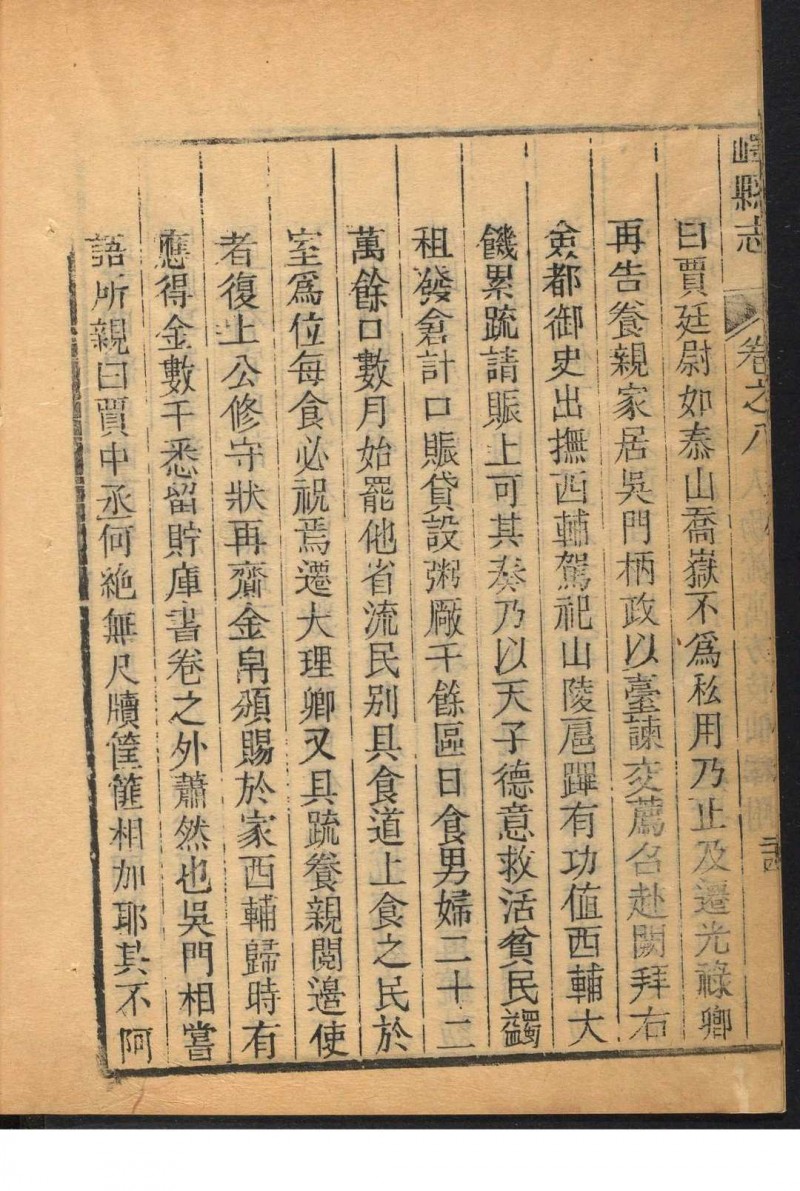 嶧縣志 卷之八
曰賈廷尉如泰山喬嶽不爲私用乃止及遷光祿卿
再告養親家居吳門柄政以臺諫交薦名赴闕拜右
僉都御史出撫西輔駕祀山陵扈蹕有功值西輔大
饑累疏請賑上可其奏乃以天子德意救活貧民蠲
租發倉計口賑貸設粥廠千餘區日食男婦二十二
萬餘口數月始罷他省流民别具食道上食之民於
室爲位每食必祝焉遷大理卿又具疏養親閱邉使
者復上公修守狀再齎金帛頒賜於家西輔歸時有
應得金數千悉留貯庫書卷之外蕭然也吳門相嘗
語所親曰賈中丞何絶無尺牘筐篚相加耶其不阿